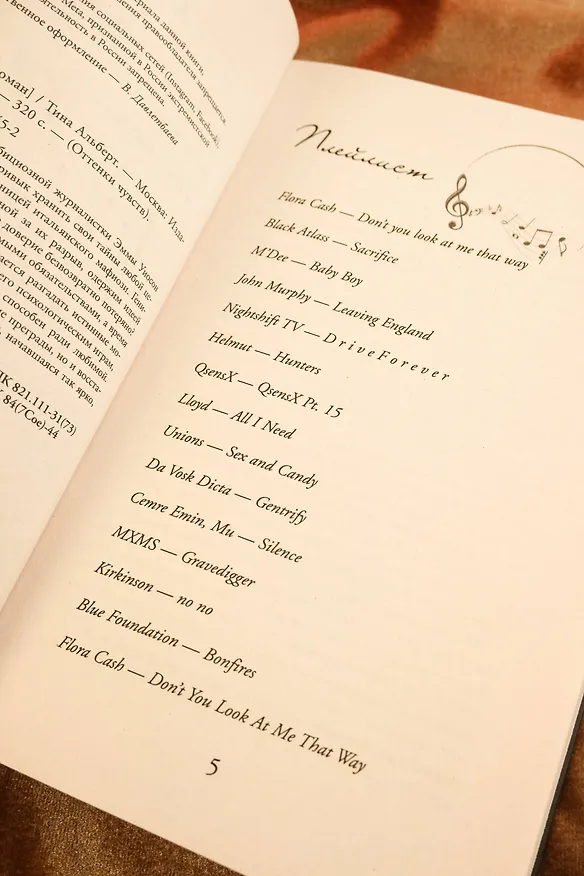 ериала данной книги,
ния правообладателя запрещается.
ния социальных сетей (Instagram, Facebook),
Meta, признанной в России экстремистской
тельность в России запрещена.
твенное оформление — В. Давлетбаева
оман] / Тина Альберт. — Москва: Изда-
— 320 с. — (Оттенки чувств).
5-2
биционной журналистки Эммы Уилсон
ривык хранить свои тайны любой це-
ницей итальянского мафиози. Гени-
ной за их разрыв, одержим идеей
доверие безвозвратно потеряно?
мыми обязательствами, а время
ается разгадать истинные мо-
его психологическим играм,
способен ради любимой.
е преграды, но и восста-
, начавшаяся так ярко,
К 821.111-31(73)
84(7Сое)-44
Плейлист
Flora Cash — Don't you look at me that way
Black Atlass — Sacrifice
M'Dee — Baby Boy
John Murphy — Leaving England
Nightshift TV — D r i v e F o r e v e r
Helmut — Hunters
QsensX — QsensX Pt. 15
Lloyd — All I Need
Unions — Sex and Candy
Da Vosk Dicta — Gentrify
Cemre Emin, Mu — Silence
MXMS — Gravedigger
Kirkinson — no no
Blue Foundation — Bonfires
Flora Cash — Don't You Look At Me That Way
5